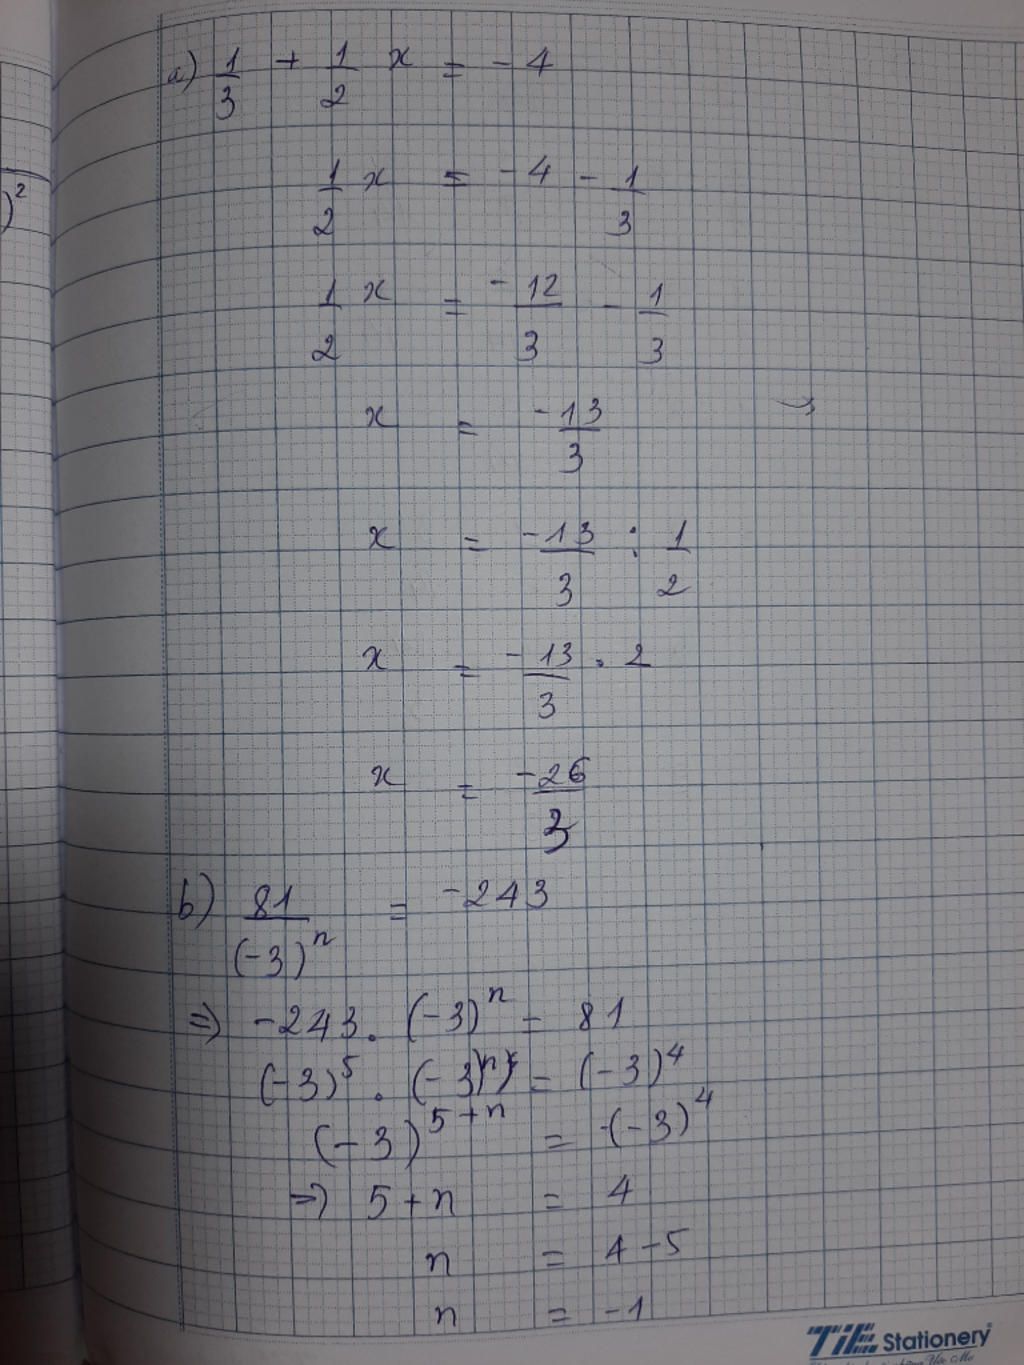 )²
a) 1/3 + 1/2 x = -4
1/2 x = -4 - 1/3
1/2 x = -12/3 - 1/3
x = -13/3
x = -13/3 : 1/2
x = -13/3 . 2
x = -26/3
b) 81/(-3)ⁿ = -243
=) -243. (-3)ⁿ = 81
(-3)⁵ . (-3)ⁿ = (-3)⁴
(-3)⁵⁺ⁿ = (-3)⁴
=) 5+n = 4
n = 4-5
n = -1
TiE Stationery